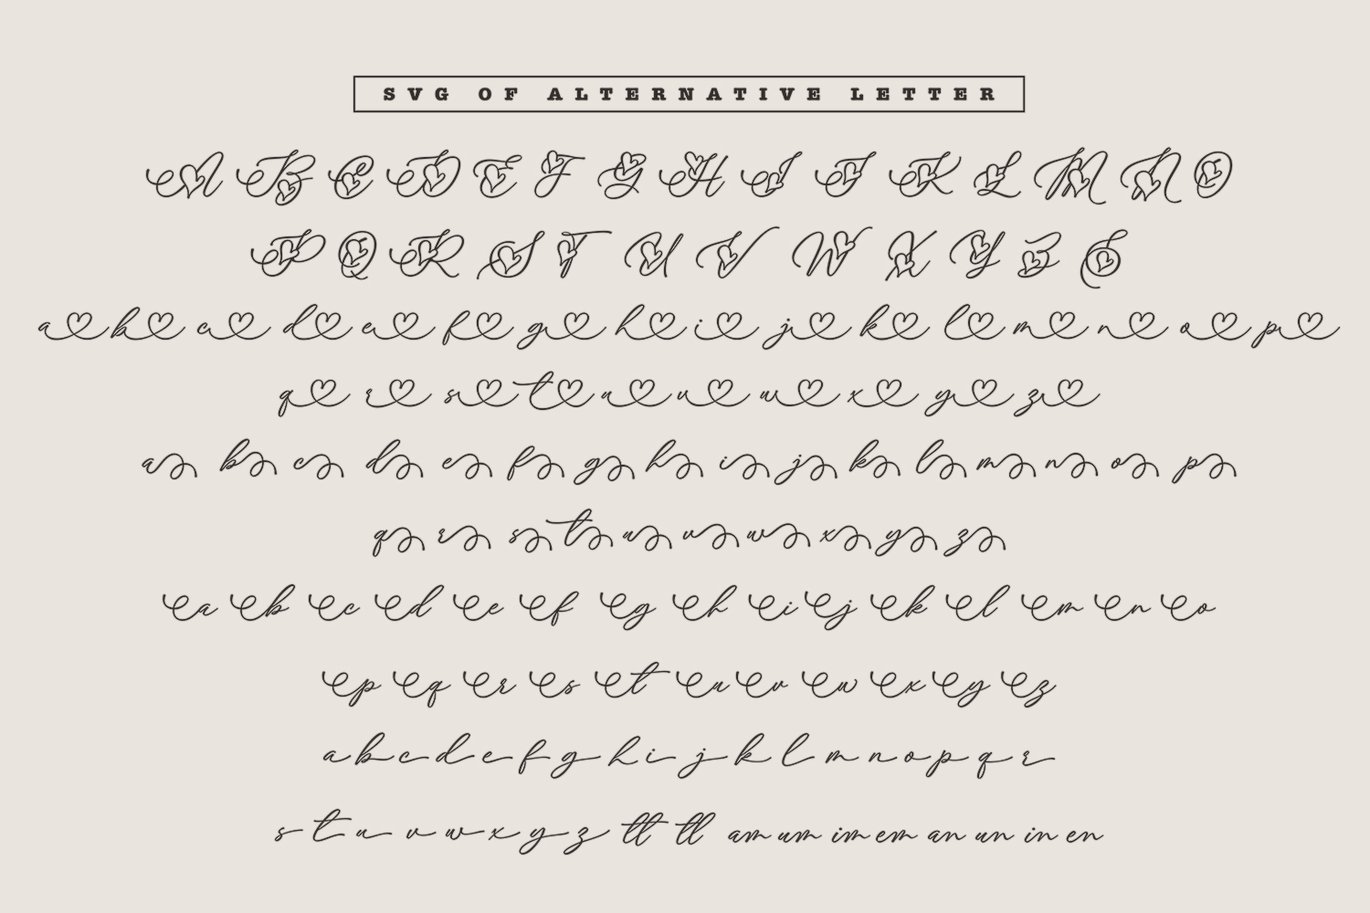 SVG OF ALTERNATIVE LETTER
A B C D E F G H I J K L M N O
P Q R S T U V W X Y Z S
a b c d e f g h i j k l m n o p
q r s t u v w x y z
a b c d e f g h i j k l m n o p
q r s t u v w x y z
a b c d e f g h i j k l m n o
p q r s t u v w x y z
a b c d e f g h i j k l m n o p q r
s t u v w x y z tt tl am um im em an un in en